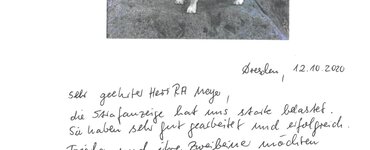 Dresden, 12.10.2020
sehr geehrter Herr RA Meyer,
die Strafanzeige hat uns stark belastet.
Sie haben sehr gut gearbeitet und erfolgreich.
und ihre Zweibeiner möchten